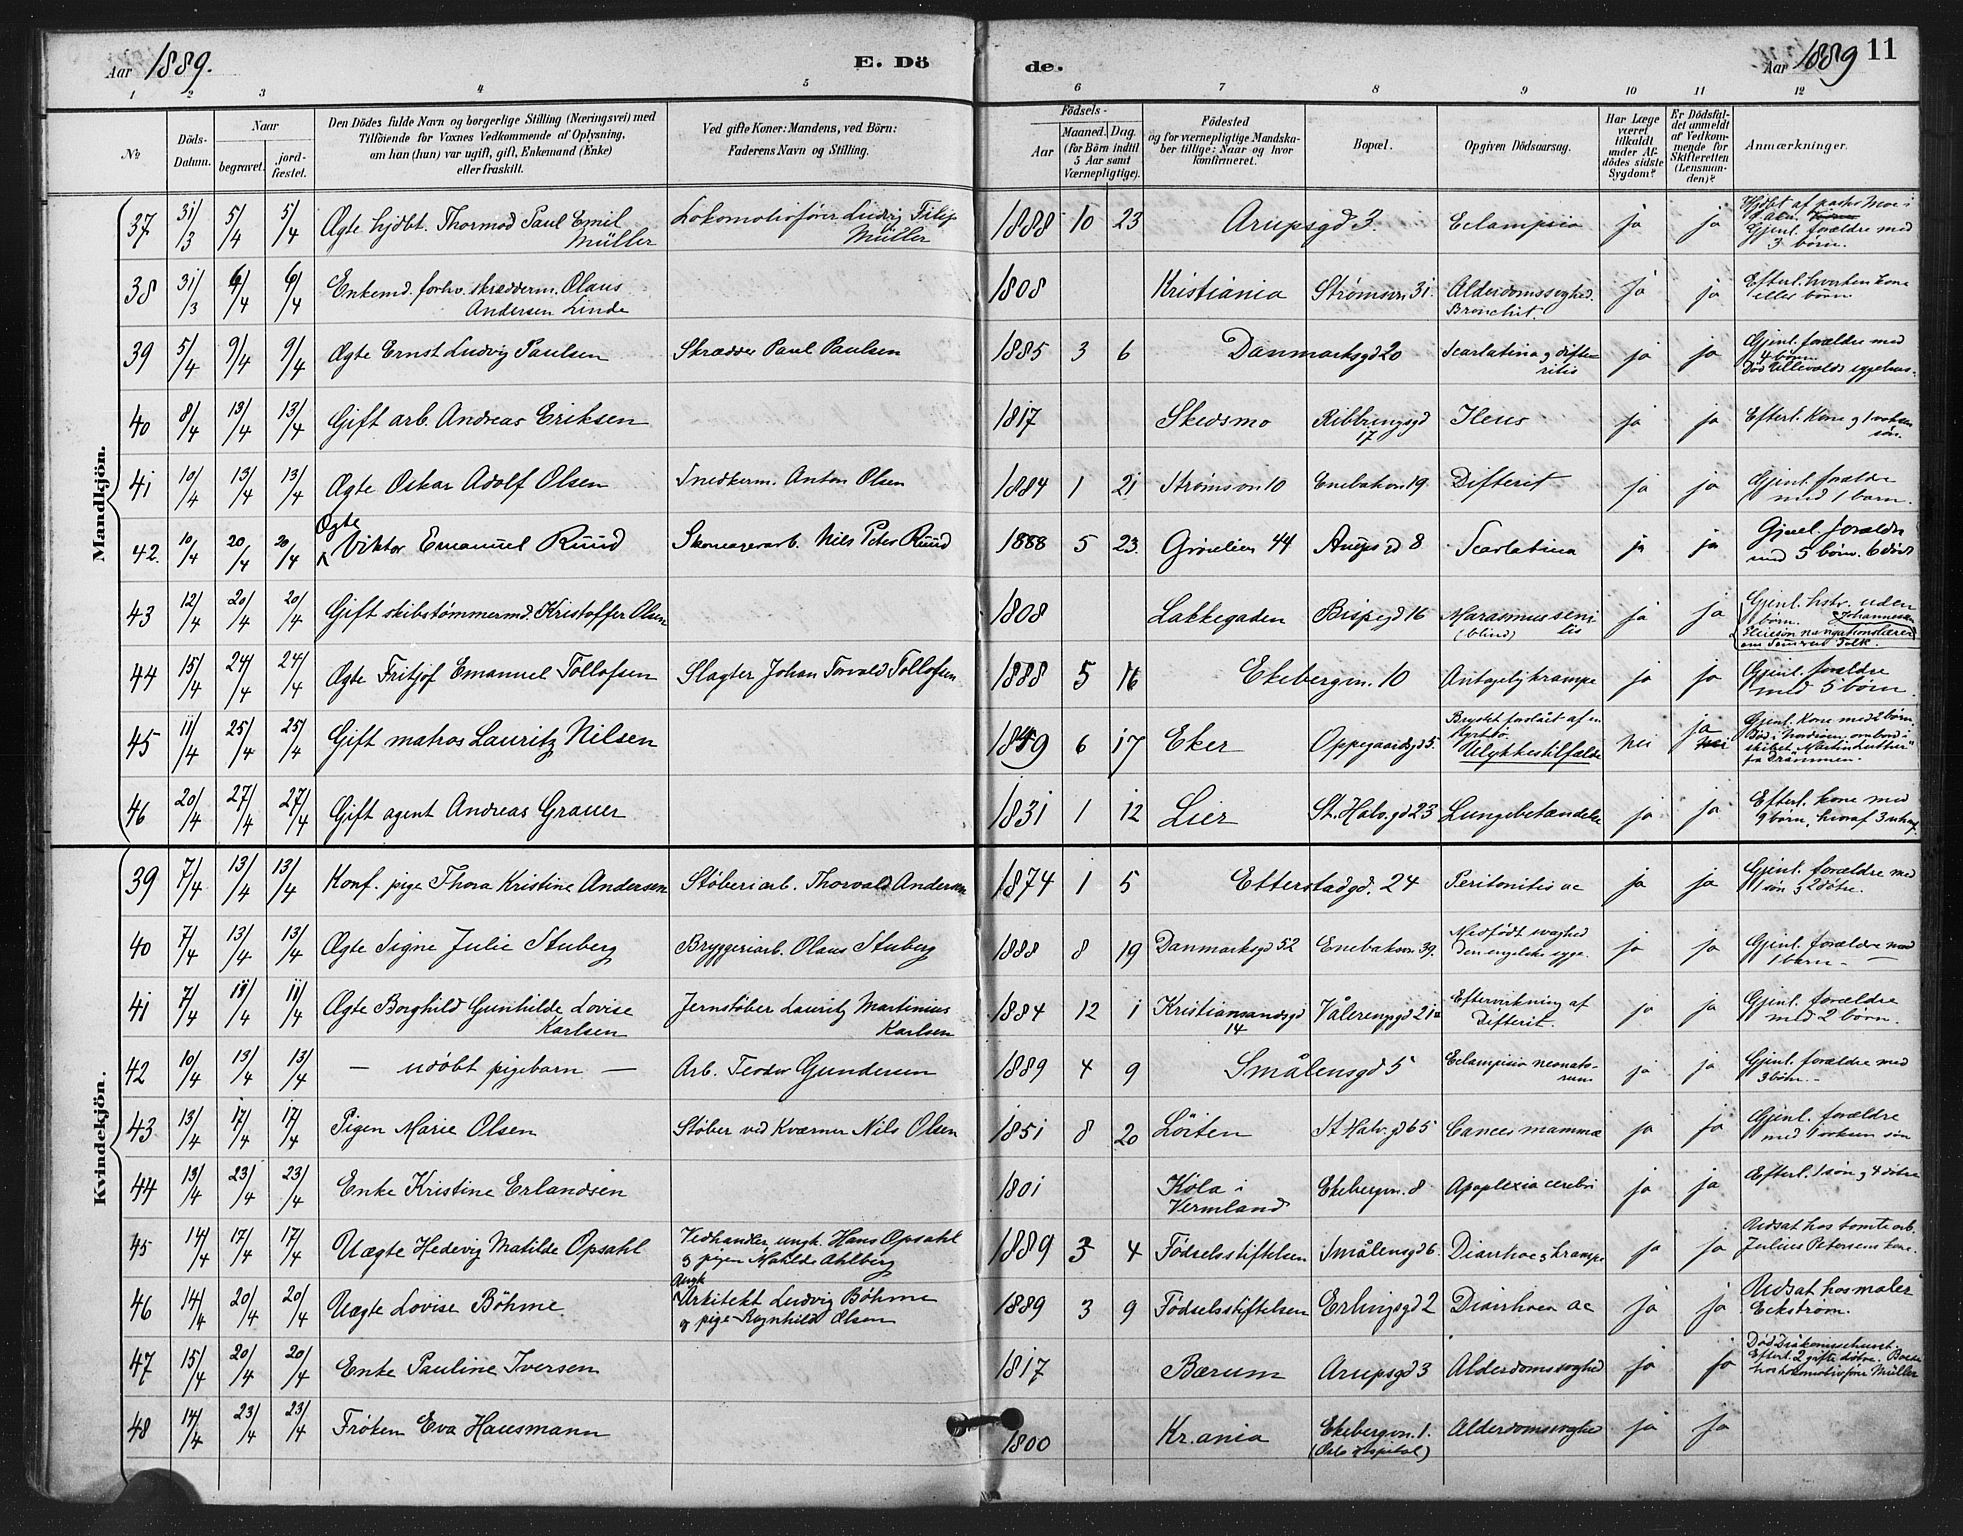 Aar 1889.
E. Dö
de.
Aar 1889
11
1 2 3 4 5 6 7 8 9 10 11 12
№
Döds-Datum.
Naar
begravet.
jord-fæstet.
Den Dödes fulde Navn og borgerlige Stilling (Næringsvei) med
Tilföiende for Voxnes Vedkommende af Oplysning,
om han (hun) var ugift, gift, Enkemand (Enke)
eller fraskilt.
Ved gifte Koner: Mandens, ved Börn:
Faderens Navn og Stilling.
Födsels-
Aar
Maaned. Dag.
(for Börn indtil
5 Aar samt
Værnepligtige).
Födested
og for værnepligtige Mandska-
ber tillige: Naar og hvor
konfirmeret.
Bopæl.
Opgiven Dödsaarsag.
Har Læge
været
tilkaldt
under Af-
dödes sidste
Sygdom?
Er Dödsfal-
det anmeldt
af Vedkom-
mende for
Skifteretten
(Lensman-
den)?
Anmærkninger.
Mandkjön.
37 31/3 5/4 5/4 Ægte hjdbt. Thormod Paul Emil Müller Lokomotivfører Ludvig Filip Müller 1888 10 23 Arupsgd 3. Eclampsia ja ja Hjdbt af pastor Moe i Gjenl. forældre med 3 børn.
38 31/3 6/4 6/4 Enkemd. forhv. skrædderm. Olaus Andersen Linde 1808 Kristiania Strømsvn 31. Alderdomssvaghed. Bronchit. ja ja Efterl. hverken kone eller børn
39 5/4 9/4 9/4 Ægte Ernst Ludvig Paulsen Skrædder Paul Paulsen 1885 3 6 Danmarksgd 20 Scarlatina & difteritis ja ja Gjenl. forældre med 4 børn Død Ullevolds sygehus.
40 8/4 13/4 13/4 Gift arb. Andreas Eriksen 1817 Skedsmo Ribbungsgd 17 Ileus ja ja Efterl. Kone & 1 voksen søn.
41 10/4 13/4 13/4 Ægte Oskar Adolf Olsen Snedkerm. Anton Olsen 1884 1 21 Strømsvn 10 Enebakvn 19. Difterit ja ja Gjenl. forældre med 1 barn.
42. 10/4 20/4 20/4 Ægte Viktor Emanuel Ruud Skomagerarb. Nils Peter Ruud 1888 5 23. Grønlien 44 Arupsgd 8 Scarlatina ja ja Gjenl. forældre med 5 børn. 6 døde
43 12/4 20/4 20/4 Gift skibstømmermd. Kristoffer Olsen 1808 Lakkegaden Bispegd 16 Marasmus senilis (blind) ja ja Gjenl. hstr. uden børn. Johannesen
44 15/4 24/4 24/4 Ægte Fritjof Emanuel Tollofsen Slagter Johan Torvald Tollofsen 1888 5 16 Ekebergvn. 10 Antagelig krampe ja ja Gjenl. forældre med 5 børn.
45 11/4 25/4 25/4 Gift matros Lauritz Nilsen 1859 6 17 Eker Oppegaardsgd 5. Brystet forslået af en styrtsø. Ulykkestilfælde nei ja nei Gjenl. kone med 2 børn. Død i Nordsøen ombord i skibet "Martin Luther" fra Drammen.
46 20/4 27/4 27/4 Gift agent Andreas Grauer 1831 1 12 Lier St. Halv. gd 23 Lungebetændelse ja ja Efterl. kone med 9 børn, hvoraf 3
Kvindekjön.
39 7/4 13/4 13/4 Konf. pige Thora Kristine Andersen Støberiarb. Thorvald Andersen 1874 1 5 Etterstadgd. 24 Peritonitis ac ja ja Gjenl. forældre med 1 søn & 2 døtre.
40 7/4 13/4 13/4 Ægte Signe Julie Stuberg Bryggeriarb. Olaus Stuberg 1888 8 19 Danmarksgd 52 Enebaksvn. 39. Medfødt svaghed Den engelske syge. ja ja Gjenl. forældre med 1 barn. —
41 7/4 11/4 11/4 Ægte Borghild Gunhilde Lovise Karlsen Jernstøber Lauritz Martinius Karlsen 1884 12 1 Kristiansandsgd 14 Vålerenggd 21a Eftervirkning af Difterit. ja ja Gjenl. forældre med 2 børn.
42 10/4 13/4 13/4 — udøbt pigebarn — Arb. Teodor Gundersen 1889 4 9 Smålensgd 5 Eclampsia neonatorum ja ja Gjenl. forældre med 3 børn. -
43 13/4 17/4 17/4 Pigen Marie Olsen Støber ved Kværner Nils Olsen 1851 8 20 Löiten St Halv. gd 65 Cancer mammæ ja ja Gjenl. forældre med 1 voksen søn
44 13/4 23/4 23/4 Enke Kristine Erlandsen 1801 Køla i Vermland Ekebergvn. 8 Apoplexia cerebri ja ja Efterl. 1 søn & 4 døtre
45 14/4 17/4 17/4 Uægte Hedevig Matilde Opsahl Vedhandler ungk. Hans Opsahl & pigen Matilde Ahlberg 1889 3 4 Fødselsstiftelsen Smålensgd 6. Diarrhoe & krampe ja ja Udsat hos tomtearb. Julius Petersens kone.
46 14/4 20/4 20/4 Uægte Lovise Böhme Ungk Arkitekt Ludvig Böhme & pige Ragnhild Olsen 1889 3 9 Fødselsstiftelsen Erlingsgd 2 Diarrhoea ac ja ja Udsat hos maler Eckstrøm.
47 15/4 20/4 20/4 Enke Pauline Iversen 1817 Bærum Arupsgd 3 Alderdomssvaghed ja ja Død Diakonissehuset. Efterl. 2 gifte døtre. hos lokomotivfører Müller
48 14/4 23/4 23/4 Frøken Eva Hausmann 1800 Kr.ania Ekebergvn. 1. (Oslo Hospital) Alderdomssvaghed ja ja